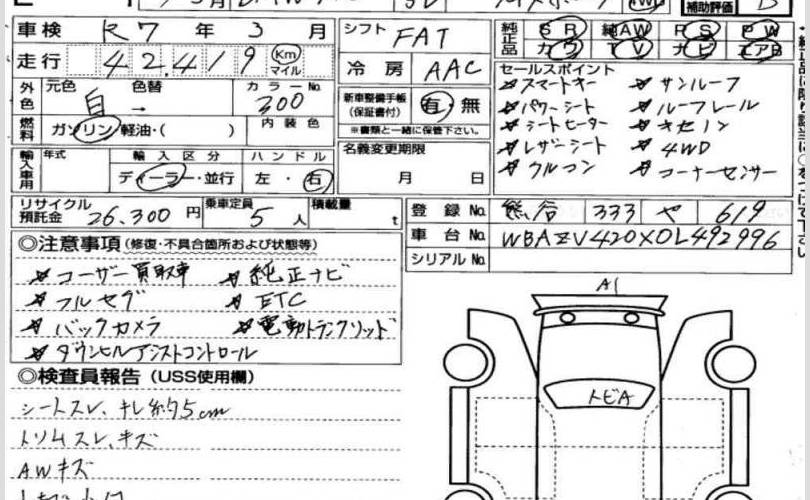 補助評価 B
車検 R7 年 3 月
シフト FAT
純正品 SR 純AW PS PW
カワ TV ナビ エアB
走行 42,419 Km マイル
冷房 AAC
セールスポイント
スマートキー サンルーフ
外色 元色 色替 カラーNo.
白 → 300
新車整備手帳 (保証書付) 有・無
※書類と一緒に保管下さい。
パワーシート ルーフレール
シートヒーター キセノン
燃料 ガソリン 軽油・( ) 内装色
レザーシート 4WD
クルコン コーナーセンサー
輸入車用 年式 輸入区分 ハンドル
ディーラー・並行 左・右
名義変更期限
月 日
リサイクル預託金 26,300 円 乗車定員 5 人 積載量 t
登録No. 熊谷 333 や 619
車台No. WBAZV420X0L492996
シリアルNo.
◎注意事項 (修復・不具合箇所および状態等)
ユーザー買取車 純正ナビ
フルセグ ETC
バックカメラ 電動トランクリッド
ダウンヒルアシストコントロール
◎検査員報告 (USS使用欄)
シートスレ、キレ約5cm
トリムスレ、キズ
AWキズ
A1
トビA